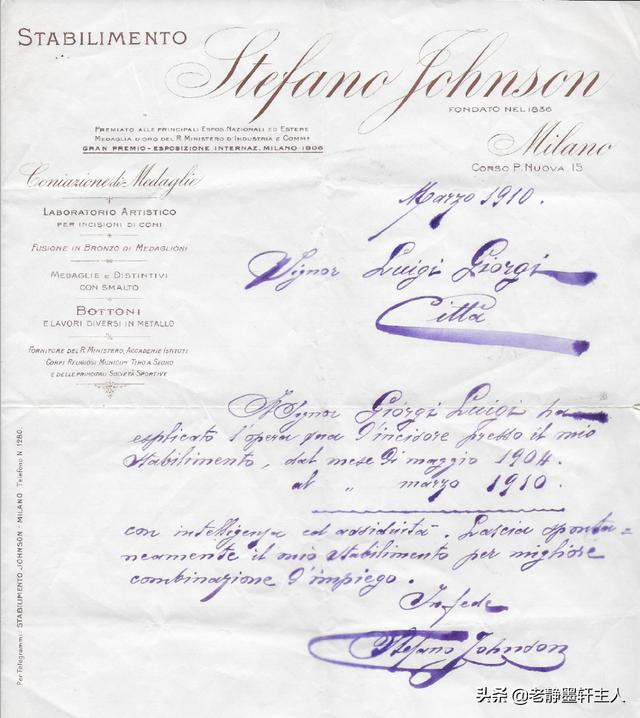 STABILIMENTO
Stefano Johnson
FONDATO NEL 1836
PREMIATO ALLE PRINCIPALI ESPOS. NAZIONALI ED ESTERE
MEDAGLIA D'ORO DEL R. MINISTERO D'INDUSTRIA E COMM.
GRAN PREMIO - ESPOSIZIONE INTERNAZ. MILANO 1906
Milano
CORSO P. NUOVA 15
Coniazione di Medaglie
LABORATORIO ARTISTICO
PER INCISIONI DI CONI
FUSIONE IN BRONZO DI MEDAGLIONI
MEDAGLIE E DISTINTIVI
CON SMALTO
BOTTONI
E LAVORI DIVERSI IN METALLO
FORNITORE DEL R. MINISTERO, ACCADEMIE ISTITUTI
CORPI RELIGIOSI MUNICIPI TIRO A SEGNO
E DELLE PRINCIPALI SOCIETÀ SPORTIVE
Marzo 1910.
Signor Luigi Giorgi
Città
Il Signor Giorgi Luigi ha
esplicato l'opera sua d'incisore presso il mio
stabilimento, dal mese di maggio 1904.
al " marzo 1910.
con intelligenza ed assiduità. Lascia sponta=
neamente il mio stabilimento per migliore
combinazione d'impiego.
In fede
Stefano Johnson
Per Telegrammi: STABILIMENTO JOHNSON - MILANO Telefono N. 1280.
头条 @老静墨轩主人